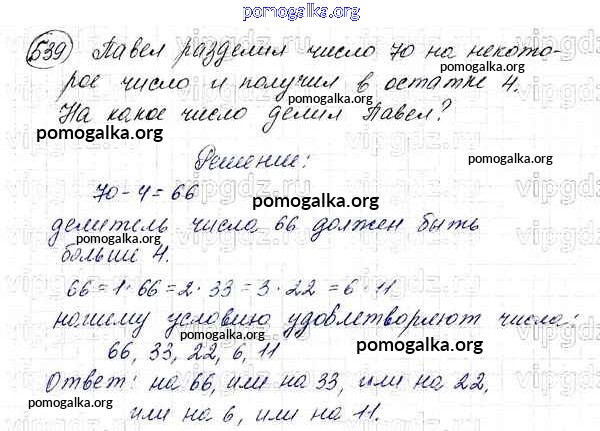 pomogalka.org
539 Павел разделил число 70 на некото-
рое число и получил в остатке 4.
pomogalka.org
На какое число делил Павел?
pomogalka.org
Решение:
pomogalka.org
70-4=66
pomogalka.org
делитель числа 66 должен быть
pomogalka.org
больше 4.
66=1·66=2·33=3·22=6·11
pomogalka.org
нашему условию удовлетворяют числа:
66, 33, 22, 6, 11
pomogalka.org
Ответ: на 66, или на 33, или на 22,
pomogalka.org
или на 6, или на 11.
pomogalka.org